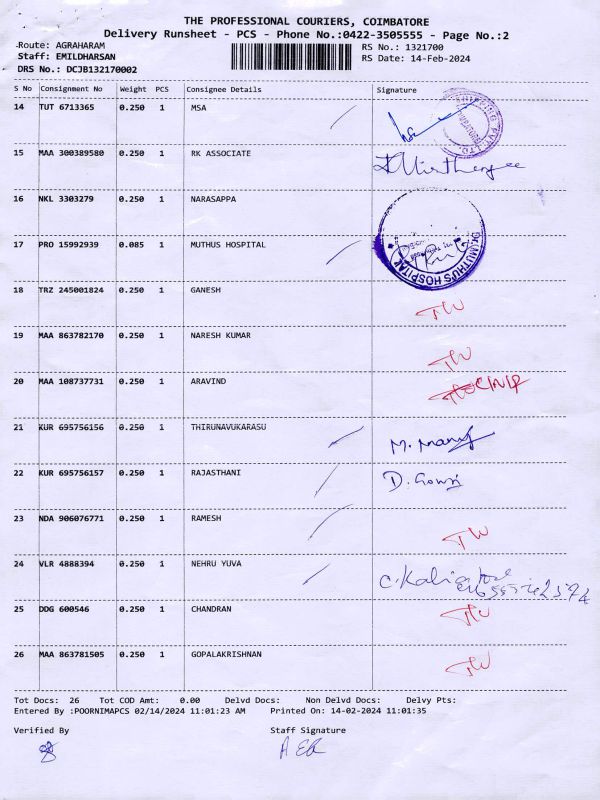 THE PROFESSIONAL COURIERS, COIMBATORE
Delivery Runsheet - PCS - Phone No.:0422-3505555 - Page No.:2
Route: AGRAHARAM RS No.: 1321700
Staff: EMILDHARSAN RS Date: 14-Feb-2024
DRS No.: DCJB132170002
S No Consignment No Weight PCS Consignee Details Signature
14 TUT 6713365 0.250 1 MSA
15 MAA 300389580 0.250 1 RK ASSOCIATE
16 NKL 3303279 0.250 1 NARASAPPA
17 PRO 15992939 0.085 1 MUTHUS HOSPITAL Dr.MUTHU'S HOSPITAL
18 TRZ 245001824 0.250 1 GANESH TW
19 MAA 863782170 0.250 1 NARESH KUMAR TW
20 MAA 108737731 0.250 1 ARAVIND
21 KUR 695756156 0.250 1 THIRUNAVUKARASU M. Many
22 KUR 695756157 0.250 1 RAJASTHANI D. Gowri
23 NDA 906076771 0.250 1 RAMESH TW
24 VLR 4888394 0.250 1 NEHRU YUVA
25 DDG 600546 0.250 1 CHANDRAN TW
26 MAA 863781505 0.250 1 GOPALAKRISHNAN TW
Tot Docs: 26 Tot COD Amt: 0.00 Delvd Docs: Non Delvd Docs: Delvy Pts:
Entered By :POORNIMAPCS 02/14/2024 11:01:23 AM Printed On: 14-02-2024 11:01:35
Verified By Staff Signature